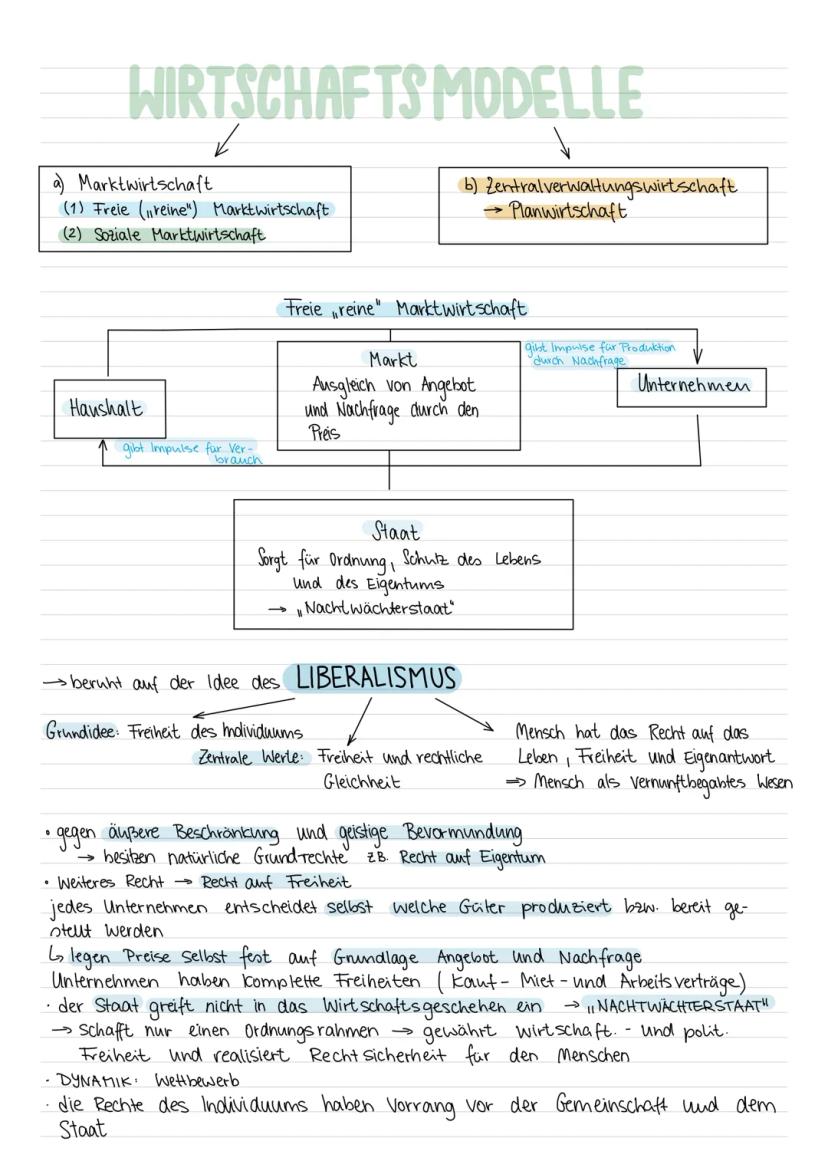 WIRTSCHAFTSMODELLE
a) Marktwirtschaft
(1) Freie („reine") Marktwirtschaft
(2) Soziale Marktwirtschaft
b) Zentralverwaltungswirtschaft
→ Planwirtschaft
Freie „reine" Marktwirtschaft
Haushalt
Markt
Ausgleich von Angebot
und Nachfrage durch den
Preis
gibt Impulse für Produktion
durch Nachfrage
Unternehmen
gibt Impulse für Ver-
brauch
Staat
Sorgt für Ordnung, Schutz des Lebens
und des Eigentums
→ „Nachtwächterstaat"
→ beruht auf der Idee des LIBERALISMUS
Grundidee: Freiheit des Individuums
Zentrale Werte: Freiheit und rechtliche
Gleichheit
Mensch hat das Recht auf das
Leben, Freiheit und Eigenantwort
⇒ Mensch als vernunftbegabtes Wesen
• gegen äußere Beschränkung und geistige Bevormundung
→ besitzen natürliche Grundrechte zB. Recht auf Eigentum
• Weiteres Recht → Recht auf Freiheit
jedes Unternehmen entscheidet selbst welche Güter produziert bzw. bereit ge-
stellt werden
↳ legen Preise selbst fest auf Grundlage Angebot und Nachfrage
Unternehmen haben komplette Freiheiten (Kauf- Miet- und Arbeitsverträge)
· der Staat greift nicht in das Wirtschaftsgeschehen ein → „NACHTWÄCHTERSTAAT"
→ Schafft nur einen Ordnungsrahmen → gewährt wirtschaft. - und polit.
Freiheit und realisiert Rechtsicherheit für den Menschen
· DYNAMIK: Wettbewerb
· die Rechte des Individuums haben Vorrang vor der Gemeinschaft und dem
Staat